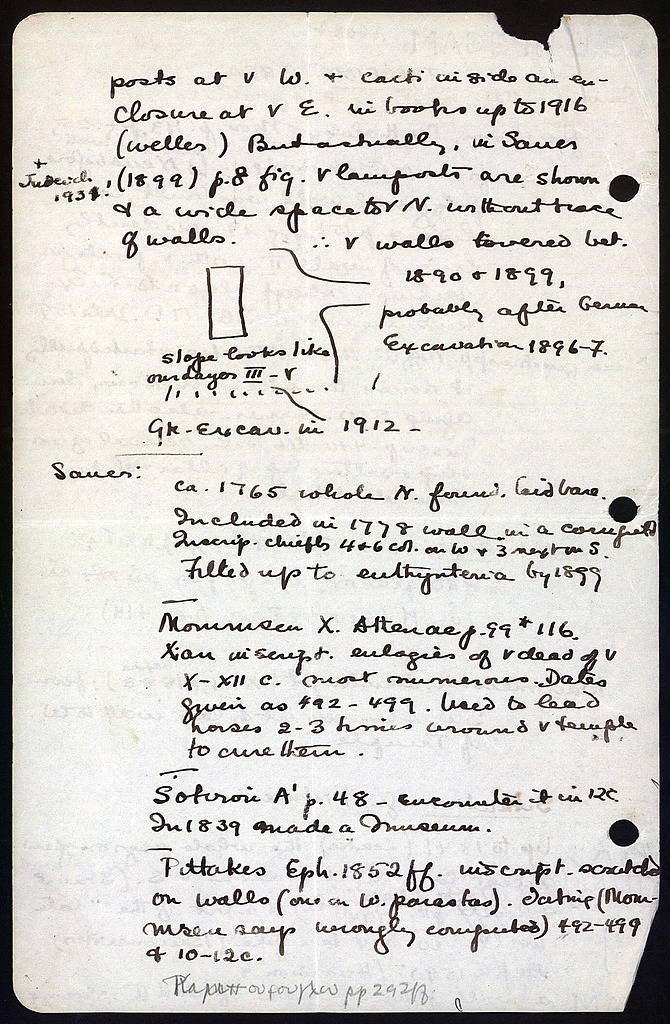 posts at v W. + cacti inside an en-
closure at v E. in books up to 1916
(Weller) But actually, in Sauer
+ Judeich 1931!
(1899) p. 8 fig. v lampposts are shown
& a wide space to v N. without trace
of walls. ∴ v walls lowered bet.
1890 & 1899,
probably after German
Excavation 1896-7.
slope looks like
our days III - v
Gk. Excav. in 1912 -
Sauer:
ca. 1765 whole N. found. laid bare.
Included in 1778 wall in a cornfield
Inscrip. chiefly 4 & 6 col. on W + 3 next on S.
Filled up to euthynteria by 1899
Mommsen X. Athenae p. 99 # 116.
Xian inscript. eulogies of v dead of v
X-XII c. most numerous. Dates
given as 492-499. Used to lead
horses 2-3 times around v temple
to cure them.
Sotiriou A' p. 48 - encounter it in 12c
In 1839 made a Museum.
Pittakes Eph. 1852 ff. inscript. scratched
on walls (one on W. parastas). dating (Mom-
msen says wrongly computed) 492-499
& 10-12c.
pp 292ff.